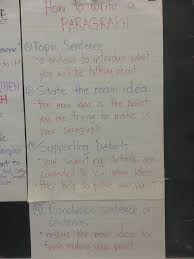 How to Write a
PARAGRAPH
① Topic Sentence
• a sentence to introduce what
you will be talking about
② State the main idea
• the main idea is the point
you are trying to make in
your paragraph
③ Supporting Details
• your supporting details are
connected to your main idea
they help to prove your point
④ Conclusion sentence or
sentences
• restate the main ideas to
finish making your point